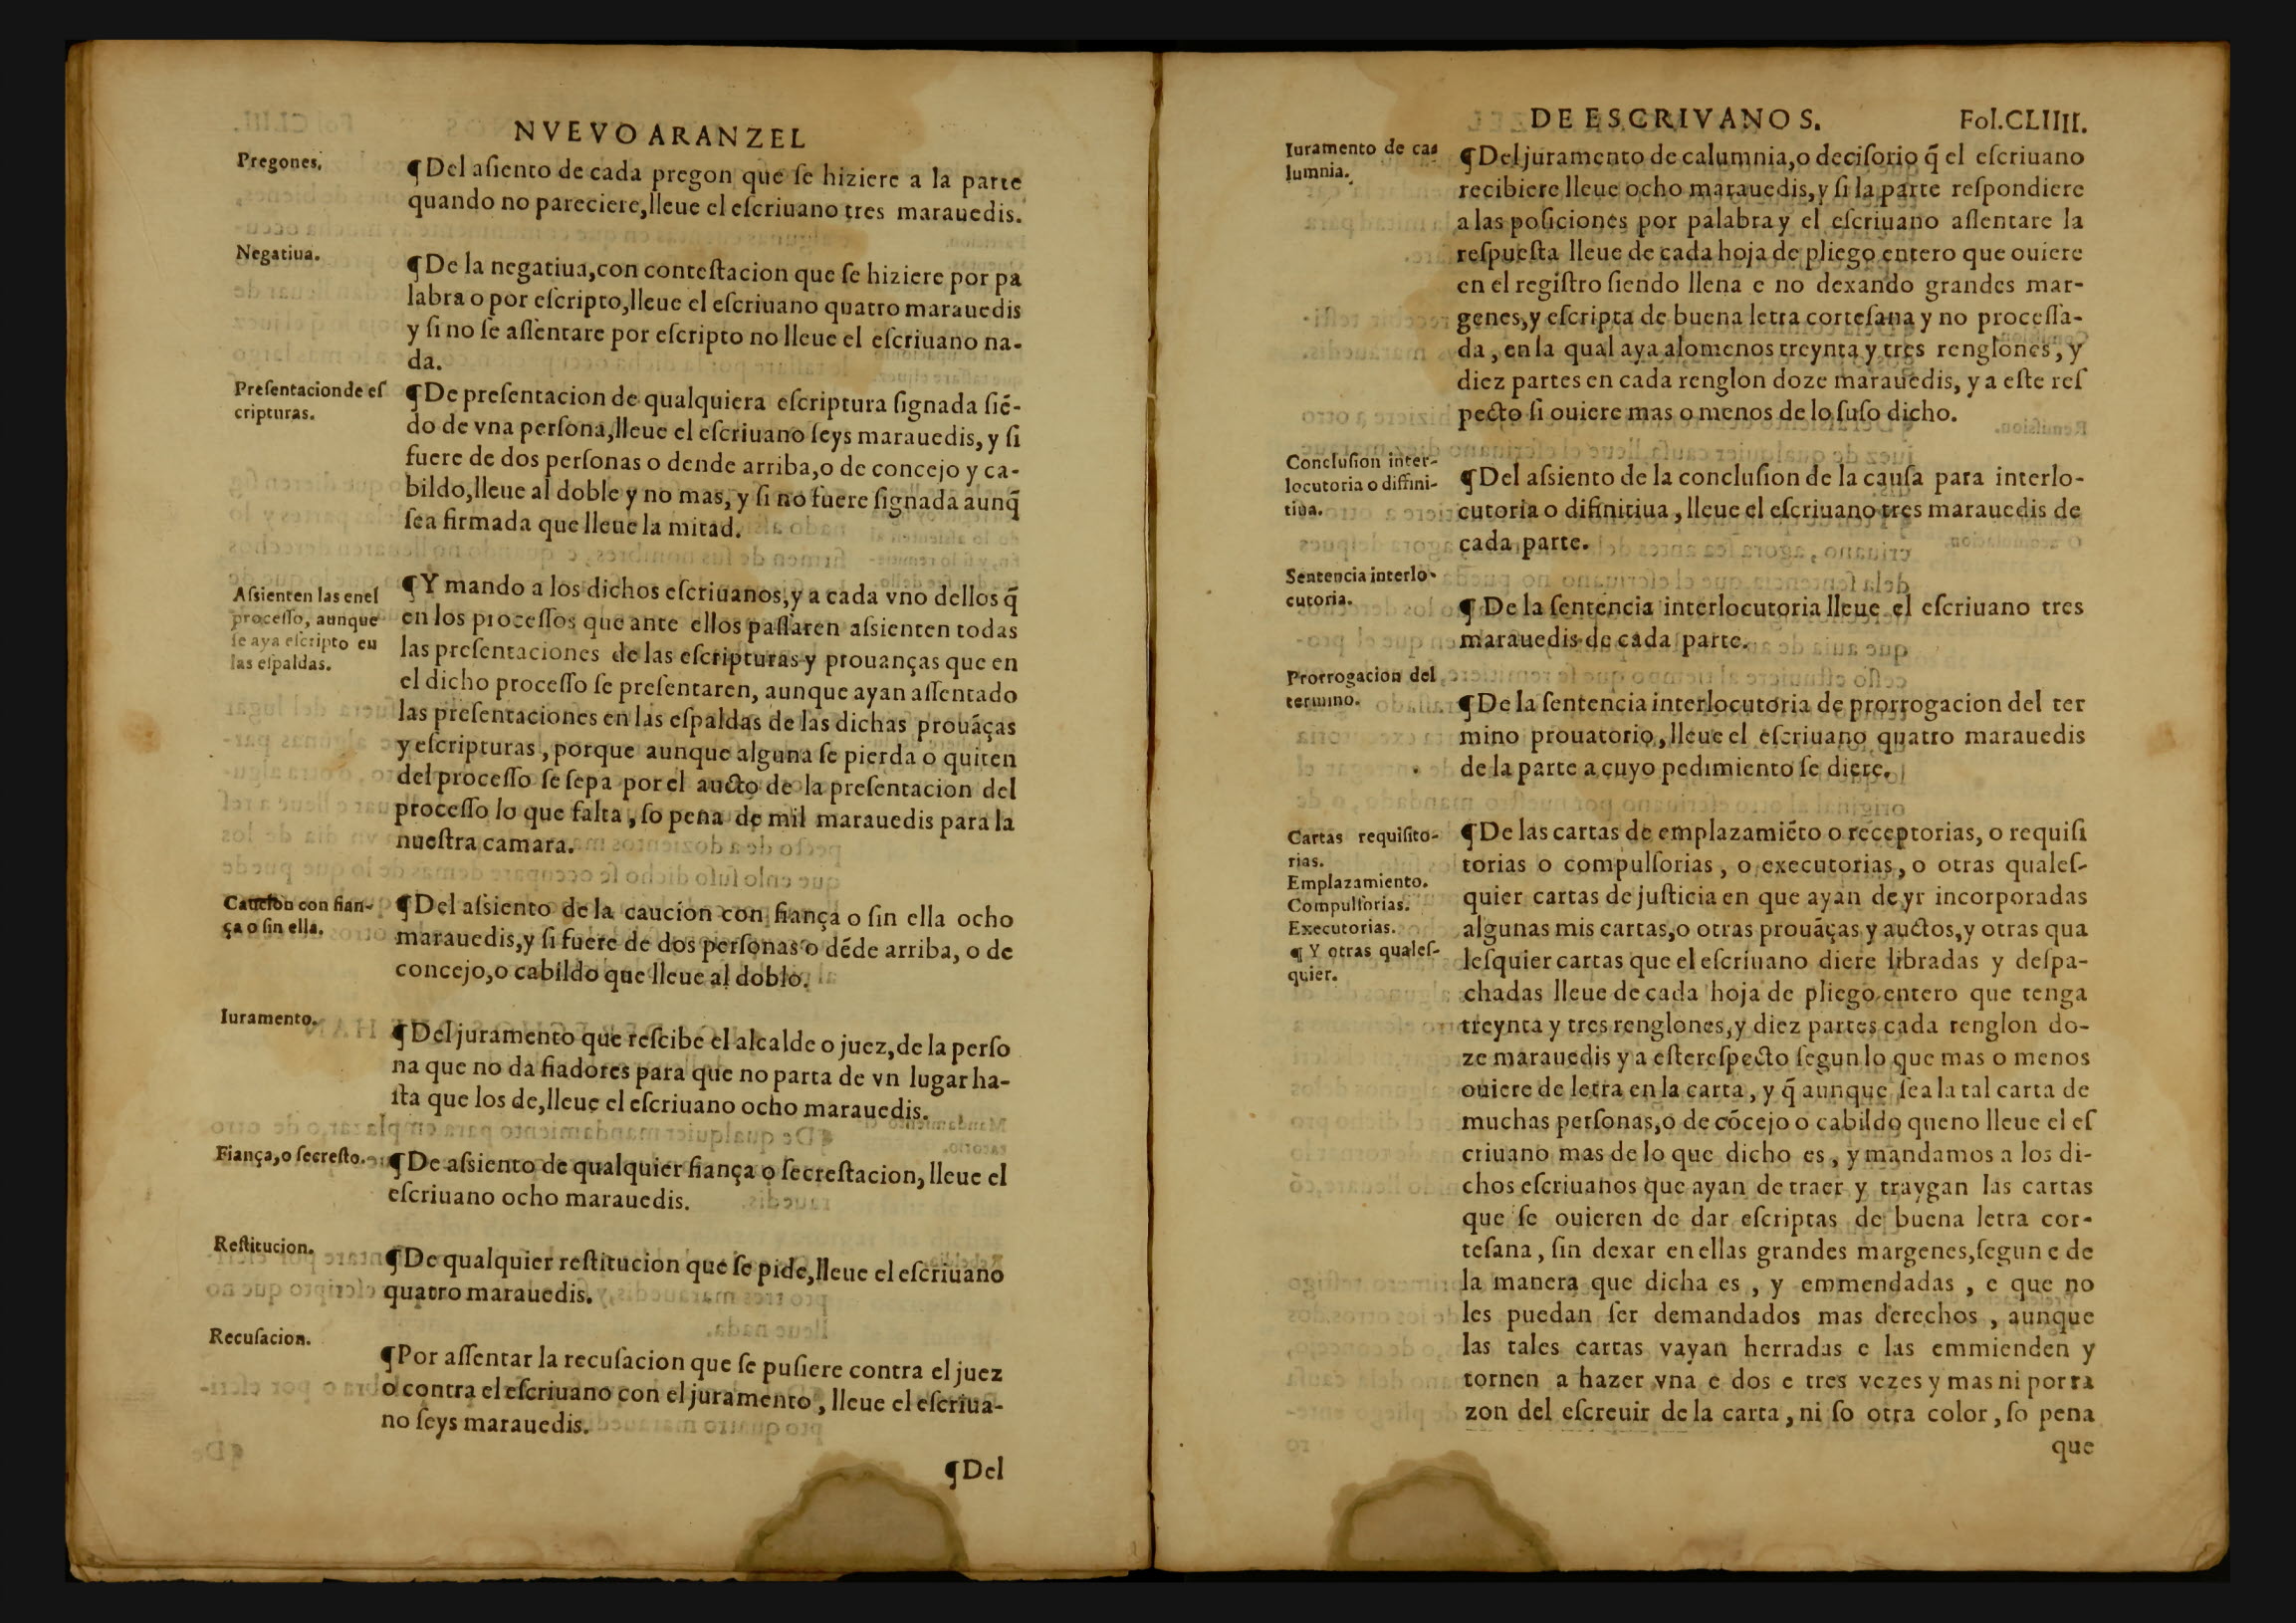 NVEVO ARANZEL
Pregones.
¶Del asiento de cada pregon que ſe hiziere a la parte
quando no pareciere,lleue el eſcriuano tres marauedis.
Negatiua.
¶De la negatiua,con conteſtacion que ſe hiziere por pa
labra o por eſcripto,lleue el eſcriuano quatro marauedis
y ſi no ſe aſſentare por eſcripto no lleue el eſcriuano na-
da.
Preſentacion de eſ
cripturas.
¶De preſentacion de qualquiera eſcriptura ſignada ſiẽ-
do de vna perſona,lleue el eſcriuano ſeys marauedis, y ſi
fuere de dos perſonas o dende arriba,o de concejo y ca-
bildo,lleue al doble y no mas, y ſi no fuere ſignada aunq̃
ſea firmada que lleue la mitad.
Aſsienten las enel
proceſſo, aunque
ſe aya eſcripto en
las eſpaldas.
¶Y mando a los dichos eſcriuanos,y a cada vno dellos q̃
en los proceſſos que ante ellos paſſaren aſsienten todas
las preſentaciones de las eſcripturas y prouanças que en
el dicho proceſſo ſe preſentaren, aunque ayan aſſentado
las preſentaciones en las eſpaldas de las dichas prouãças
y eſcripturas, porque aunque alguna ſe pierda o quiten
del proceſſo ſe ſepa por el aucto de la preſentacion del
proceſſo lo que falta, ſo pena de mil marauedis para la
nueſtra camara.
Caucion con fian-
ça o ſin ella.
¶Del aſsiento de la caucion con fiança o ſin ella ocho
marauedis,y ſi fuere de dos perſonas o dẽde arriba, o de
concejo,o cabildo que lleue al doblo.
Iuramento.
¶Del juramento que reſcibe el alcalde o juez,de la perſo
na que no da fiadores para que no parta de vn lugar ha-
ſta que los de,lleue el eſcriuano ocho marauedis.
Fiança,o ſecreſto.
¶De aſsiento de qualquier fiança o ſecreſtacion, lleue el
eſcriuano ocho marauedis.
Reſtitucion.
¶De qualquier reſtitucion que ſe pide,lleue el eſcriuano
quatro marauedis.
Recuſacion.
¶Por aſſentar la recuſacion que ſe puſiere contra el juez
o contra el eſcriuano con el juramento, lleue el eſcriua-
no ſeys marauedis.
¶Del
DE ESCRIVANOS. Fol.CLIIII.
Iuramento de ca-
lumnia.
¶Del juramento de calumnia,o deciſorio q̃ el eſcriuano
recibiere lleue ocho marauedis,y ſi la parte reſpondiere
a las poſiciones por palabra y el eſcriuano aſſentare la
reſpueſta lleue de cada hoja de pliego entero que ouiere
en el regiſtro ſiendo llena e no dexando grandes mar-
genes,y eſcripta de buena letra corteſana y no proceſſa-
da, en la qual aya alomenos treynta y tres renglones, y
diez partes en cada renglon doze marauedis, y a eſte reſ
pecto ſi ouiere mas o menos de lo ſuſo dicho.
Concluſion inter-
locutoria o diffini-
tiua.
¶Del aſsiento de la concluſion de la cauſa para interlo-
cutoria o difinitiua, lleue el eſcriuano tres marauedis de
cada parte.
Sentencia interlo-
cutoria.
¶De la ſentencia interlocutoria lleue el eſcriuano tres
marauedis de cada parte.
Prorrogacion del
termino.
¶De la ſentencia interlocutoria de prorrogacion del ter
mino prouatorio, lleue el eſcriuano quatro marauedis
de la parte a cuyo pedimiento ſe diere.
Cartas requiſito-
rias.
Emplazamiento.
Compulſorias.
Executorias.
¶ Y otras qualeſ-
quier.
¶De las cartas de emplazamiẽto o receptorias, o requiſi
torias o compulſorias, o executorias, o otras qualeſ-
quier cartas de juſticia en que ayan de yr incorporadas
algunas mis cartas,o otras prouãças y auctos,y otras qua
leſquier cartas que el eſcriuano diere libradas y deſpa-
chadas lleue de cada hoja de pliego entero que tenga
treynta y tres renglones,y diez partes cada renglon do-
ze marauedis y a eſte reſpecto ſegun lo que mas o menos
ouiere de letra en la carta, y q̃ aunque ſea la tal carta de
muchas perſonas,o de cõcejo o cabildo que no lleue el eſ
criuano mas de lo que dicho es, y mandamos a los di-
chos eſcriuanos que ayan de traer y traygan las cartas
que ſe ouieren de dar eſcriptas de buena letra cor-
teſana, ſin dexar en ellas grandes margenes,ſegun e de
la manera que dicha es, y emmendadas, e que no
les puedan ſer demandados mas derechos, aunque
las tales cartas vayan herradas e las emmienden y
tornen a hazer vna e dos e tres vezes y mas ni por ra
zon del eſcreuir de la carta, ni ſo otra color, ſo pena
que